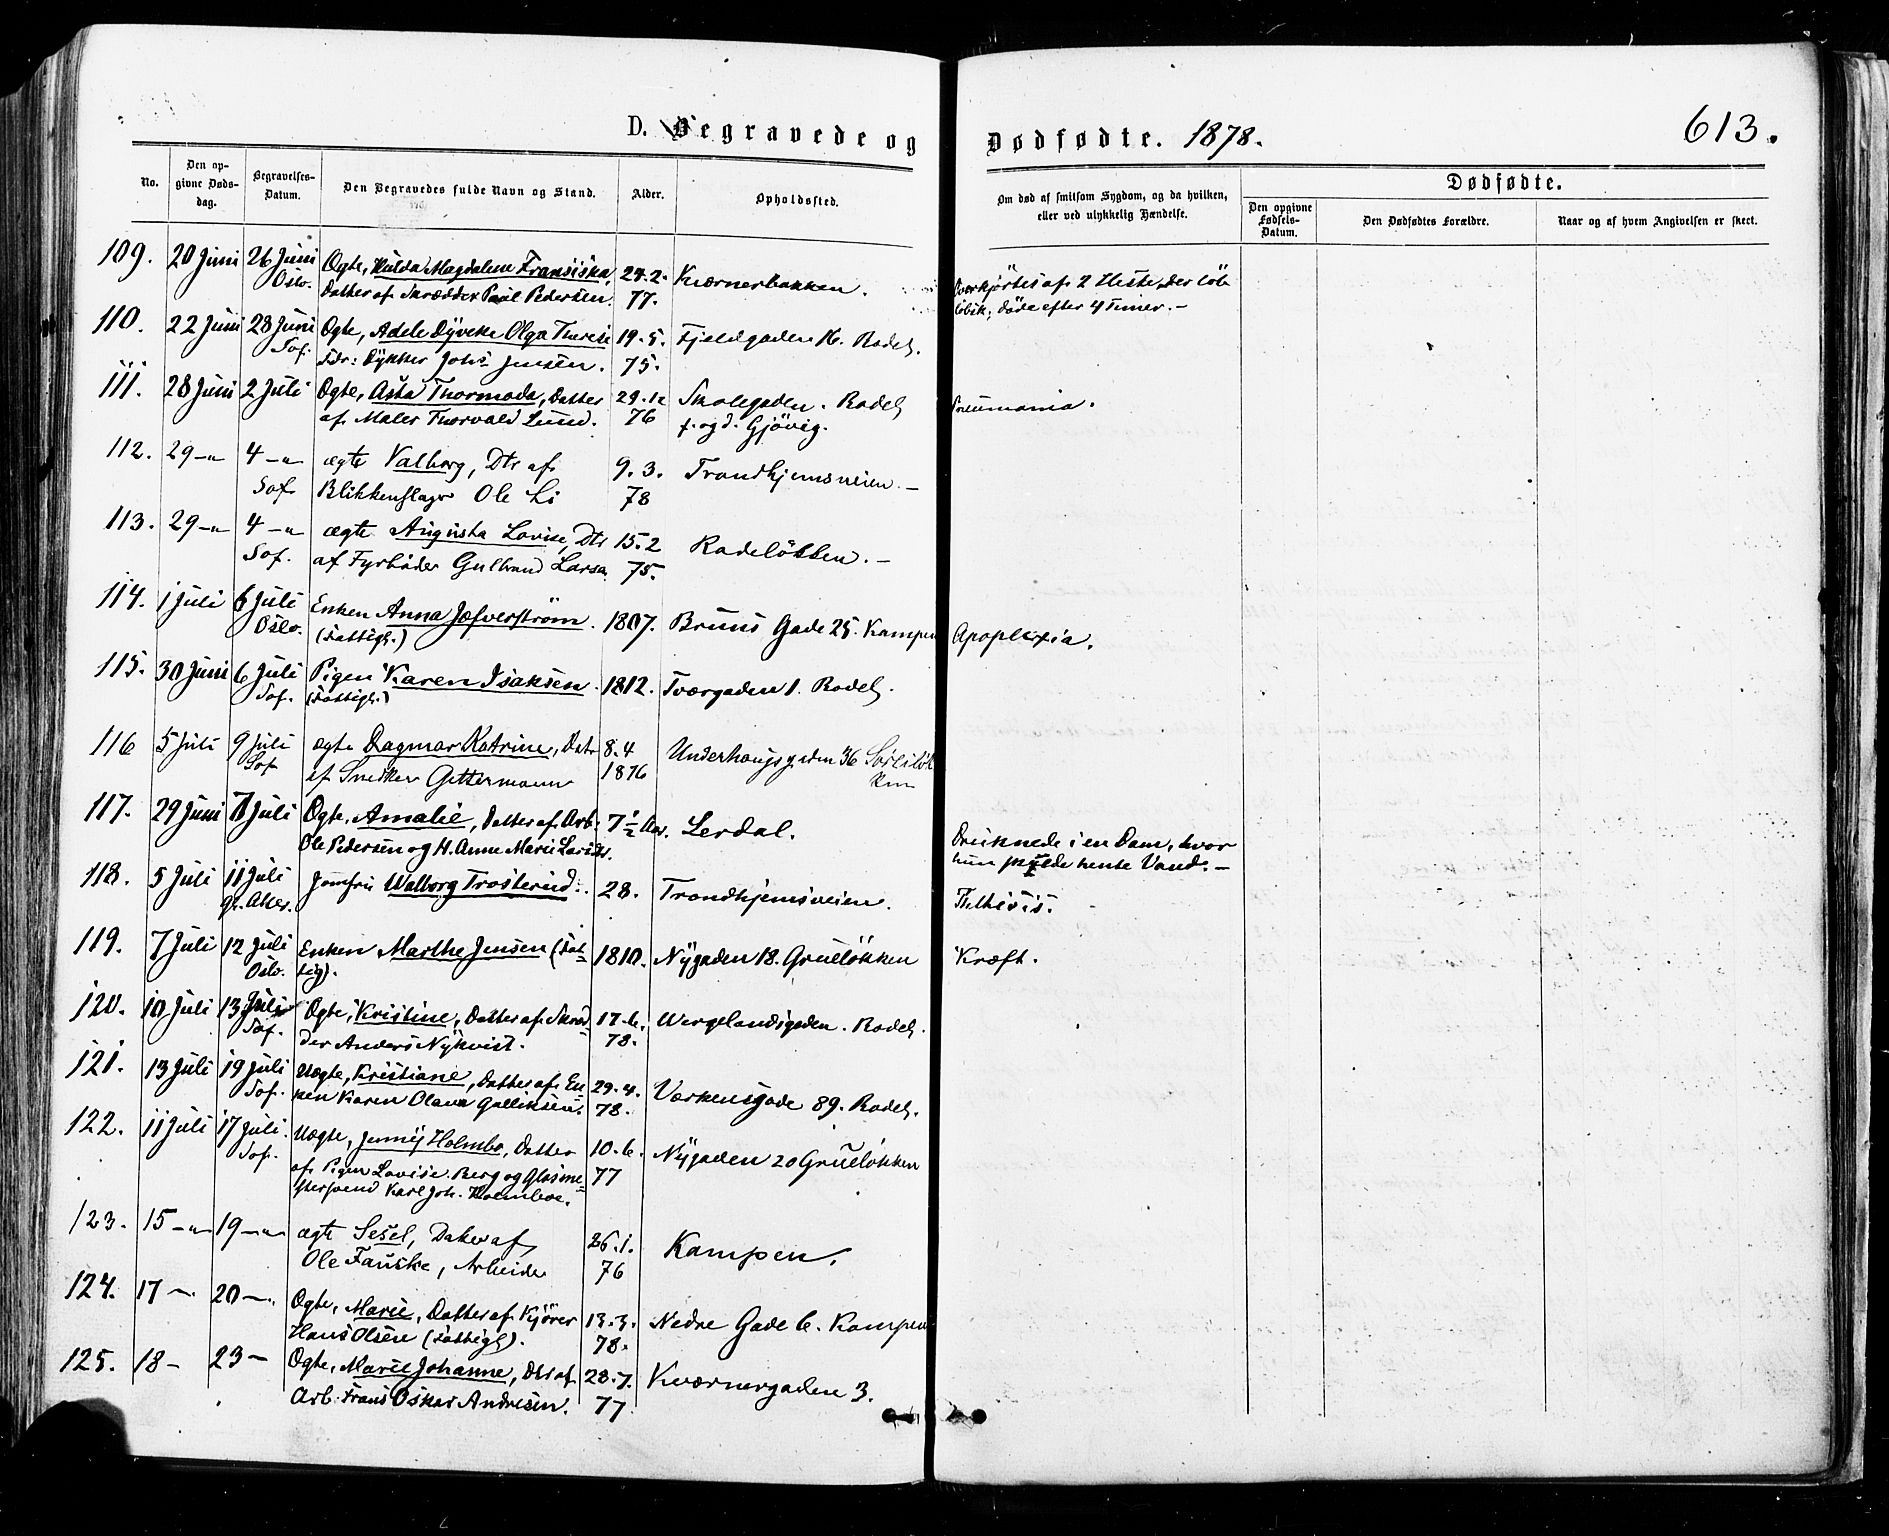 D. Begravede og Dødfødte. 1878.
613.
No.
Den op-
givne Døds-
dag.
Begravelses-
Datum.
Den Begravedes fulde Navn og Stand.
Alder.
Opholdssted.
Om død af smitsom Sygdom, og da hvilken,
eller ved ulykkelig Hændelse.
Dødfødte.
Den opgivne
Fødsels-
Datum.
Den Dødfødtes Forældre.
Naar og af hvem Angivelsen er skeet.
109. 20 Juni 26 Juni Ogte, Hulda Magdalene Fransiska, 24.2. Kværnerbakken. Overkjørtes af 2 Heste, der løb
Oslo. Datter af Skrædder Paul Pedersen. 77. løbsk; døde efter 4 Timer. –
110. 22 Juni 28 Juni Ogte, Adele Dyveke Olga Therese 19.5. Fjeldgaden 16. Rodel.
Sof. Fdr: Dykker Johs Jensen. 75.
111. 28 Juni 2 Juli Ogte, Asta Thormoda, Datter 29.12 Skolegaden. Rodel. Pneumonia.
af Maler Thorvald Lund. 76 f. og d. Gjövig.
112. 29 –"– 4 –"– ægte Valborg, Dtr af 9.3. Trondhjemsveien. –
Sof. Blikkenslager Ole Li 78
113. 29 –"– 4 –"– ægte Augusta Lovise, Dtr 15.2 Rodeløkken. –
Sof. af Fyrbøder Gulbrand Larsen 75.
114. 1 Juli 6 Juli Enken Anna Jæfverstrøm. 1807. Bruns Gade 25. Kampen Apoplexia.
Oslo. (Fattigl.)
115. 30 Juni 6 Juli Pigen Karen Isaksen. 1812. Tværgaden 1. Rodel.
Sof. (Fattigl.)
116 5 Juli 9 Juli ægte Dagmar Katrine, Datr 8.4 Underhaugsgaden 36
Sof af Snedker Gettermann 1876
117. 29 Juni 7 Juli Ogte, Amalie, Datter af Arb. 7½ Aar. Lerdal. Druknede i en Dam, hvor
Ole Pedersen og H. Anne Marie hun skulde hente Vand. –
118. 5 Juli 11 Juli Jomfru Walborg Trosterud. 28. Trondhjemsveien. Fthisis.
gr. Aker.
119. 7 Juli 12 Juli Enken Marthe Jensen (Fat- 1810. Nygaden 18. Grueløkken Kræft.
Oslo. tig).
120. 10 Juli 13 Juli Ogte, Kristine, Datter af Skræd- 17.6. Wergelandsgaden. Rodel.
Sof. der Anders Nykvist. 78.
121. 13 Juli 19 Juli Uogte, Kristiane, Datter af En- 29.4. Værkensgade 89. Rodel.
Sof. ken Karen Olava Gulliksen. 78.
122. 11 Juli 17 Juli. Uogte, Jenny Holmbo, Datter 10.6. Nygaden 20 Grueløkken
Sof. af Pigen Lovise Berg og Glasme- 77
stersvend Karl Joh. Holmboe.
123. 15 –"– 19 –"– ægte Sesel, Datter af 26.1. Kampen.
Ole Fauske, Arbeider 76
124. 17 –"– 20 –"– Ogte, Marie, Datter af Kjører 13.3. Nedre Gade 6. Kampen
Hans Olsen (Fattigl). 78.
125. 18 – 23 – Ogte, Marie Johanne, Dtr af 28.7. Kværnergaden 3.
Arb. Frans Oskar Andresen. 77